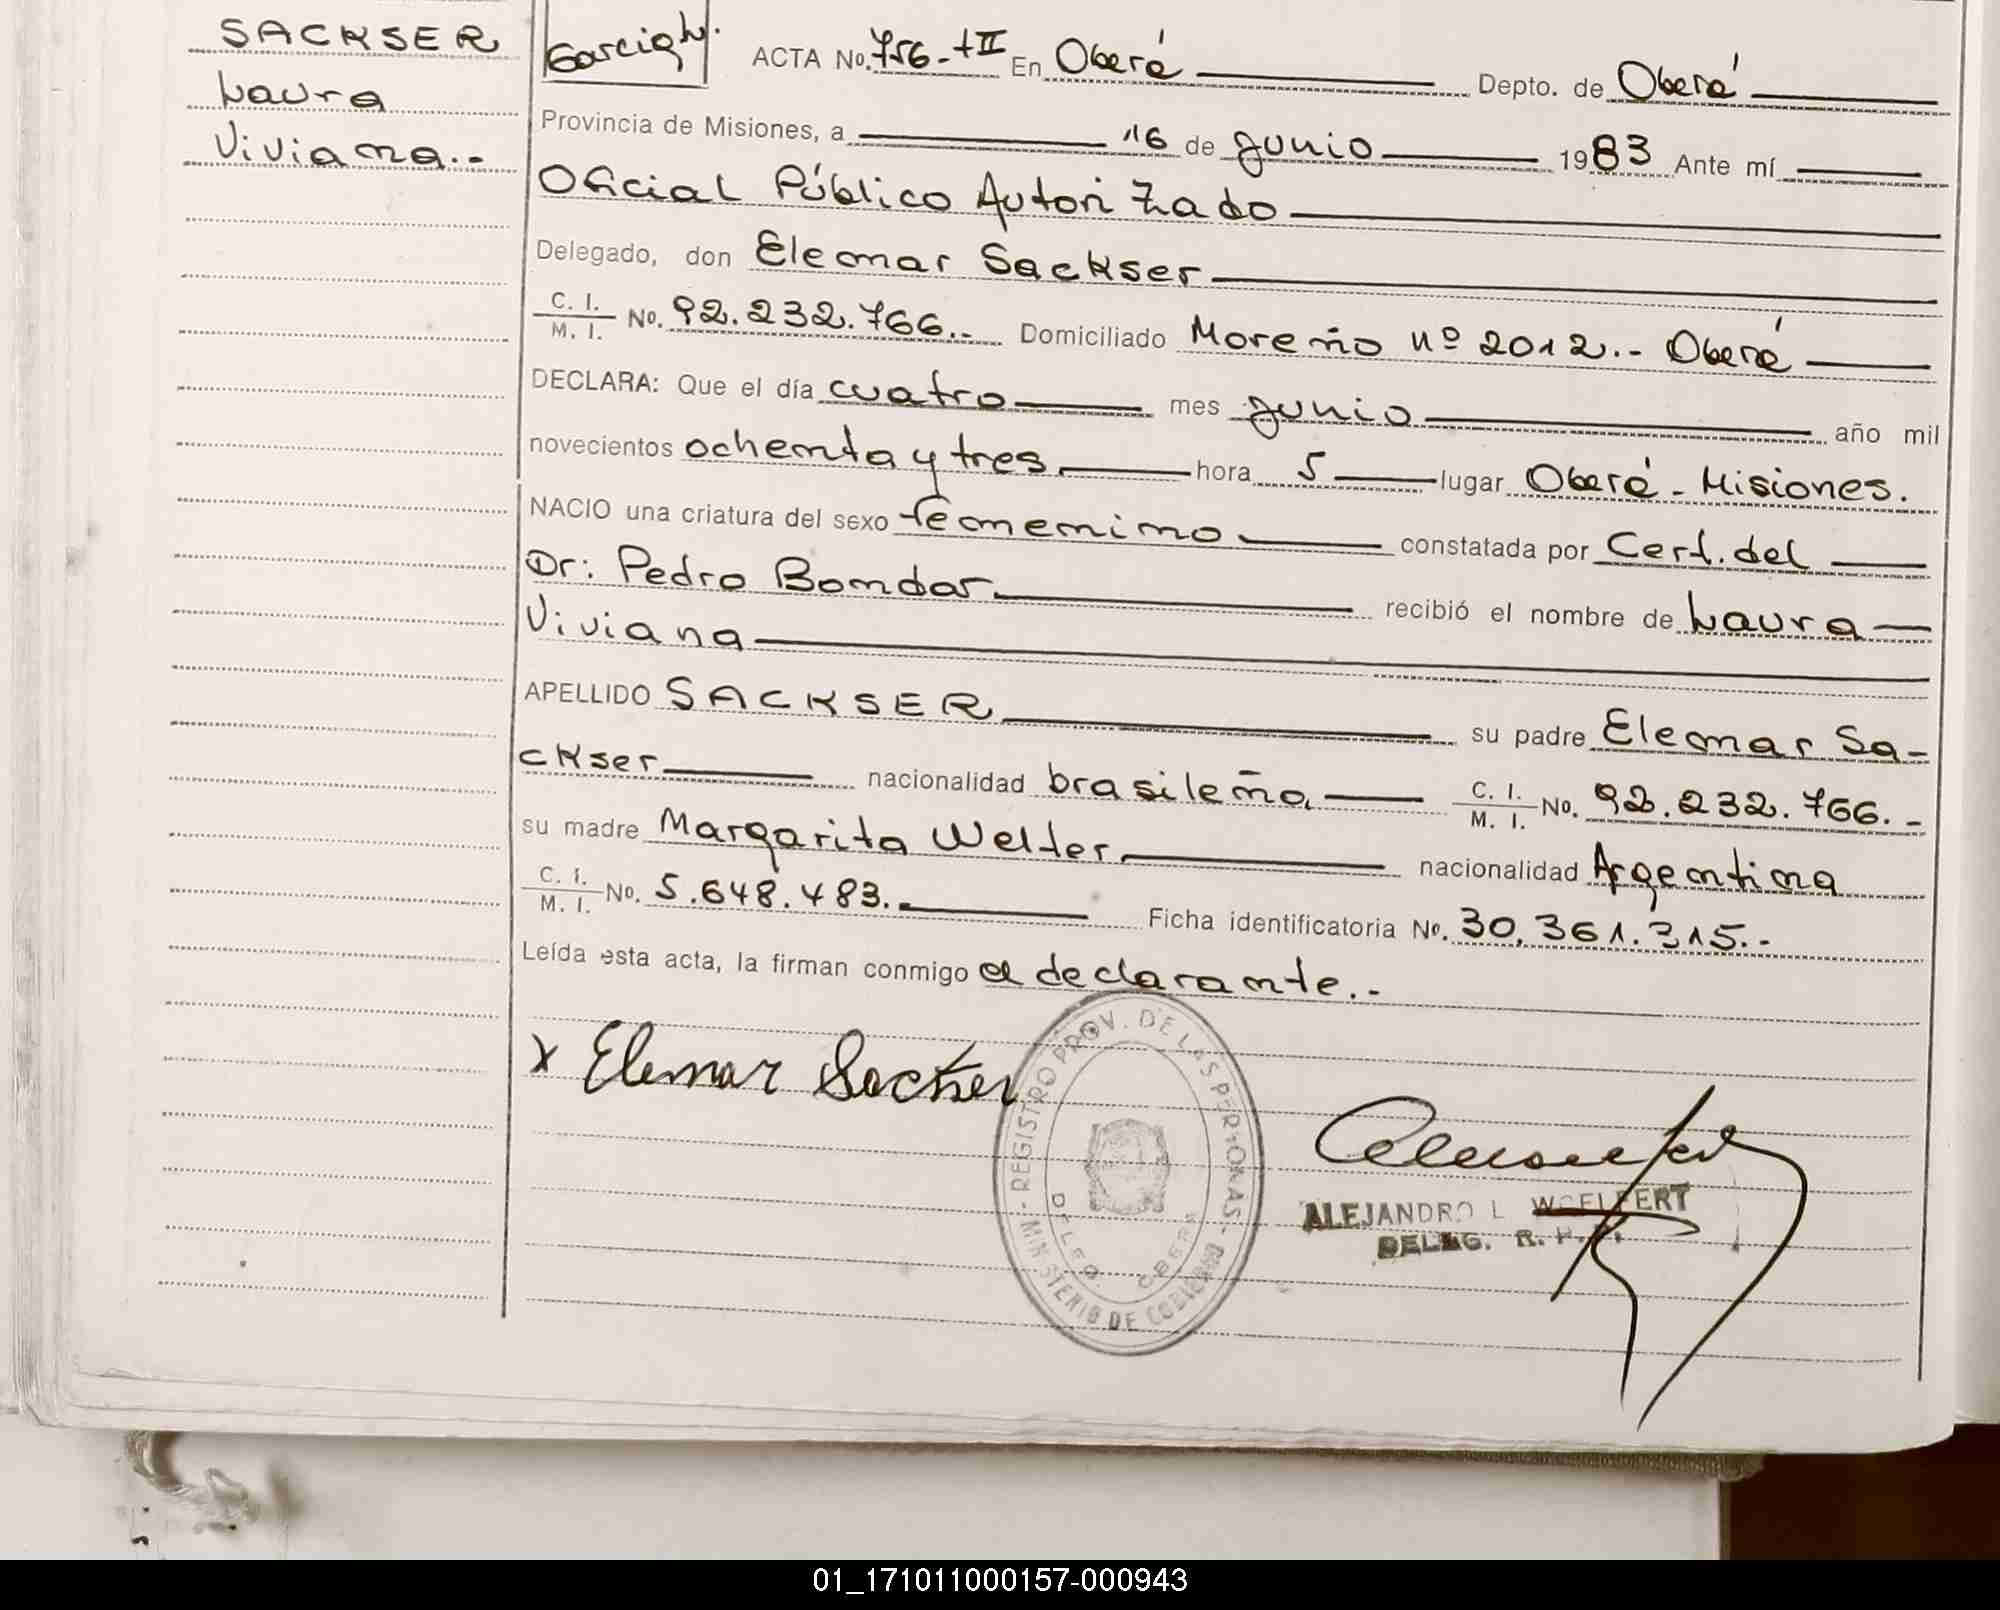 SACKSER
Laura
Viviana.-
ACTA No. 756-tII En Oberá Depto. de Oberá
Provincia de Misiones, a 16 de junio 1983 Ante mí
Oficial Público Autorizado
Delegado, don Elemar Sackser
C. I.
M. I. No. 92.232.766.- Domiciliado Moreño nº 2012.- Oberá
DECLARA: Que el día cuatro mes junio año mil
novecientos ochenta y tres hora 5 lugar Oberá - Misiones.
NACIO una criatura del sexo femenino constatada por Cert. del
Dr: Pedro Bondar recibió el nombre de Laura
Viviana
APELLIDO SACKSER su padre Elemar Sa-
ckser nacionalidad brasileña C. I.
M. I. No. 92.232.766.-
su madre Margarita Welter nacionalidad Argentina
C. I.
M. I. No. 5.648.483. Ficha identificatoria No. 30.361.315.-
Leída esta acta, la firman conmigo el declarante.-
x Elemar Sackser
REGISTRO PROV. DE LAS PERSONAS - MINISTERIO DE GOBIERNO -
DELEG. OBERA
ALEJANDRO L WOELFERT
DELEG. R. P.
01_171011000157-000943